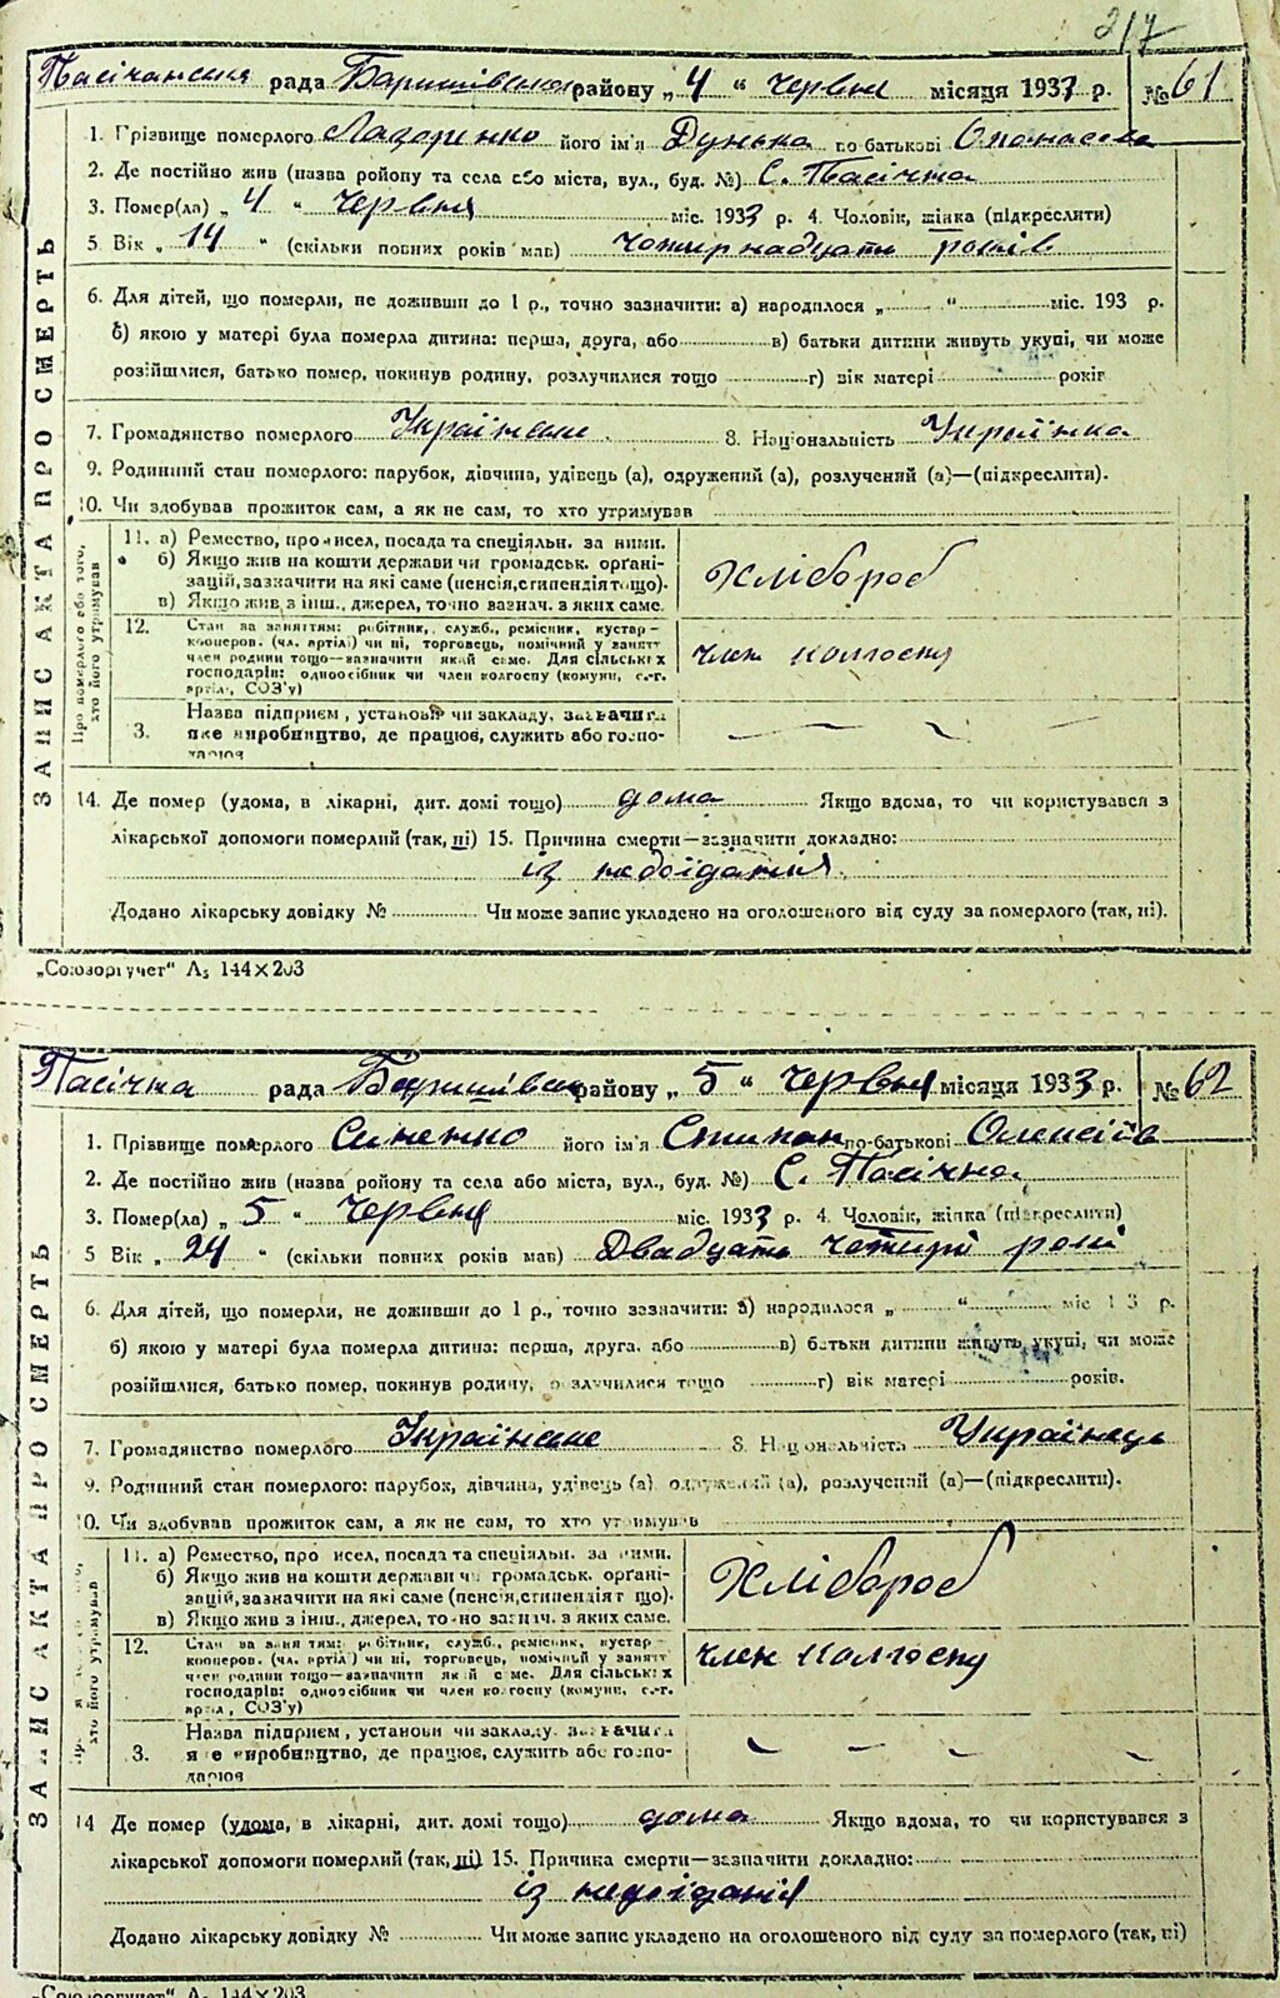 217
Пасічанська рада Баришівського району „4“ червня місяця 1933 р. №61
1. Прізвище померлого Лазоренко його ім'я Дунька по батькові Опанасова
2. Де постійно жив (назва ройопу та села або міста, вул., буд. №) С. Пасічна
3. Помер(ла) „4“ червня міс. 1933 р. 4. Чоловік, жінка (підкреслити)
5 Вік „14“ (скільки повних років мав) чотирнадцять років
6. Для дітей, що померли, не доживши до 1 р., точно зазначити: а) народилося „ “ міс. 193 р.
б) якою у матері була померла дитина: перша, друга, або в) батьки дитини живуть укупі, чи може
розійшлися, батько помер, покинув родину, розлучилися тощо г) вік матері років
7. Громадянство померлого Українське 8. Національність Українка
9. Родинний стан померлого: парубок, дівчина, удівець (а), одружений (а), розлучений (а)—(підкреслити).
10. Чи здобував прожиток сам, а як не сам, то хто утримував
ЗАПИС АКТА ПРО СМЕРТЬ
Про померлого або того, хто його утримував
11. а) Ремество, промисел, посада та спеціяльн. за ними.
б) Якщо жив на кошти держави чи громадськ. орґані-
зацій, зазначити на які саме (пенсія, стипендія тощо).
в) Якщо жив з інш., джерел, точно зазнач. з яких саме.
Хлібороб
12. Стан за заняттям: робітник, служб., ремісник, кустар-
кооперов. (чл. артілі) чи ні, торговець, помічний у занятт
член родини тощо—зазначити який саме. Для сільських
господарів: одноосібник чи член колгоспу (комуни, с.-г.
артіл, СОЗ'у)
член колгоспу
3. Назва підприєм, установи чи закладу, зазначити
яке виробництво, де працює, служить або госпо-
дарює
14. Де помер (удома, в лікарні, дит. домі тощо) дома Якщо вдома, то чи користувався з
лікарської допомоги померлий (так, ні) 15. Причина смерти—зазначити докладно:
із недоїдания.
Додано лікарську довідку № Чи може запис укладено на оголошеного від суду за померлого (так, ні).
„Союзоргучет“ А5 144×203
Пасічна рада Баришівськ району „5“ червня місяця 1933 р. №62
1. Прізвище померлого Синенко його ім'я Стипан по-батькові Олексіїв
2. Де постійно жив (назва ройону та села або міста, вул., буд. №) С. Пасічна
3. Помер(ла) „5“ червня міс. 1933 р. 4. Чоловік, жінка (підкреслити)
5 Вік „24“ (скільки повних років мав) Двадцять чотирі рокі
6. Для дітей, що померли, не доживши до 1 р., точно зазначити: а) народилося „ “ міс 1 3 р.
б) якою у матері була померла дитина: перша, друга, або в) батьки дитини живуть укупі, чи може
розійшлися, батько помер, покинув родину, розлучилися тощо г) вік матері років.
7. Громадянство померлого Українське 8. Національність Українець
9. Родинний стан померлого: парубок, дівчина, удівець (а), одружений (а), розлучений (а)—(підкреслити).
10. Чи здобував прожиток сам, а як не сам, то хто утримував
ЗАПИС АКТА ПРО СМЕРТЬ
хто його утримував
11. а) Ремество, про исел, посада та спеціяльн. за ними.
б) Якщо жив на кошти держави чи громадськ. орґані-
зацій, зазначити на які саме (пенсія, стипендія т що).
в) Якщо жив з інш., джерел, точно зазнач. з яких саме.
Хлібороб
12. Стан за заняттям: робітник, служб., ремісник, кустар
кооперов. (чл. артіл) чи ні, торговець, помічний у занятт
член родини тощо—зазначити який саме. Для сільських
господарів: одноосібник чи член колгоспу (комуни, с.-г.
артіл, СОЗ'у)
член колгоспу
3. Назва підприєм, установи чи закладу, зазначити
яке виробництво, де працює, служить або госпо-
дарює
14 Де помер (удома, в лікарні, дит. домі тощо) дома Якщо вдома, то чи користувався з
лікарської допомоги померлий (так, ні) 15. Причина смерти—зазначити докладно:
із недоїдания
Додано лікарську довідку № Чи може запис укладено на оголошеного від суду за померлого (так, ні)
„Союзоргучет“ А5 144×203